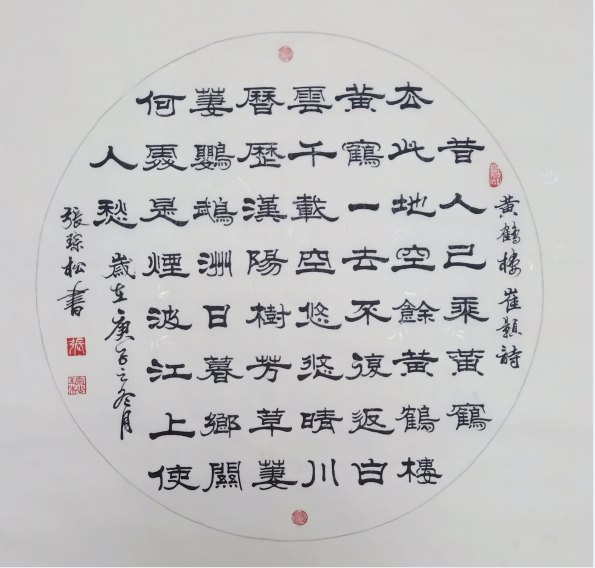 黄鶴樓 崔顥詩
昔人已乘黄鶴
去此地空餘黄鶴樓
黄鶴一去不復返白
雲千載空悠悠晴川
曆歷漢陽樹芳草萋
萋鸚鵡洲日暮鄉關
何處是煙波江上使
人愁
歲在庚子之冬月
張琮松書
張